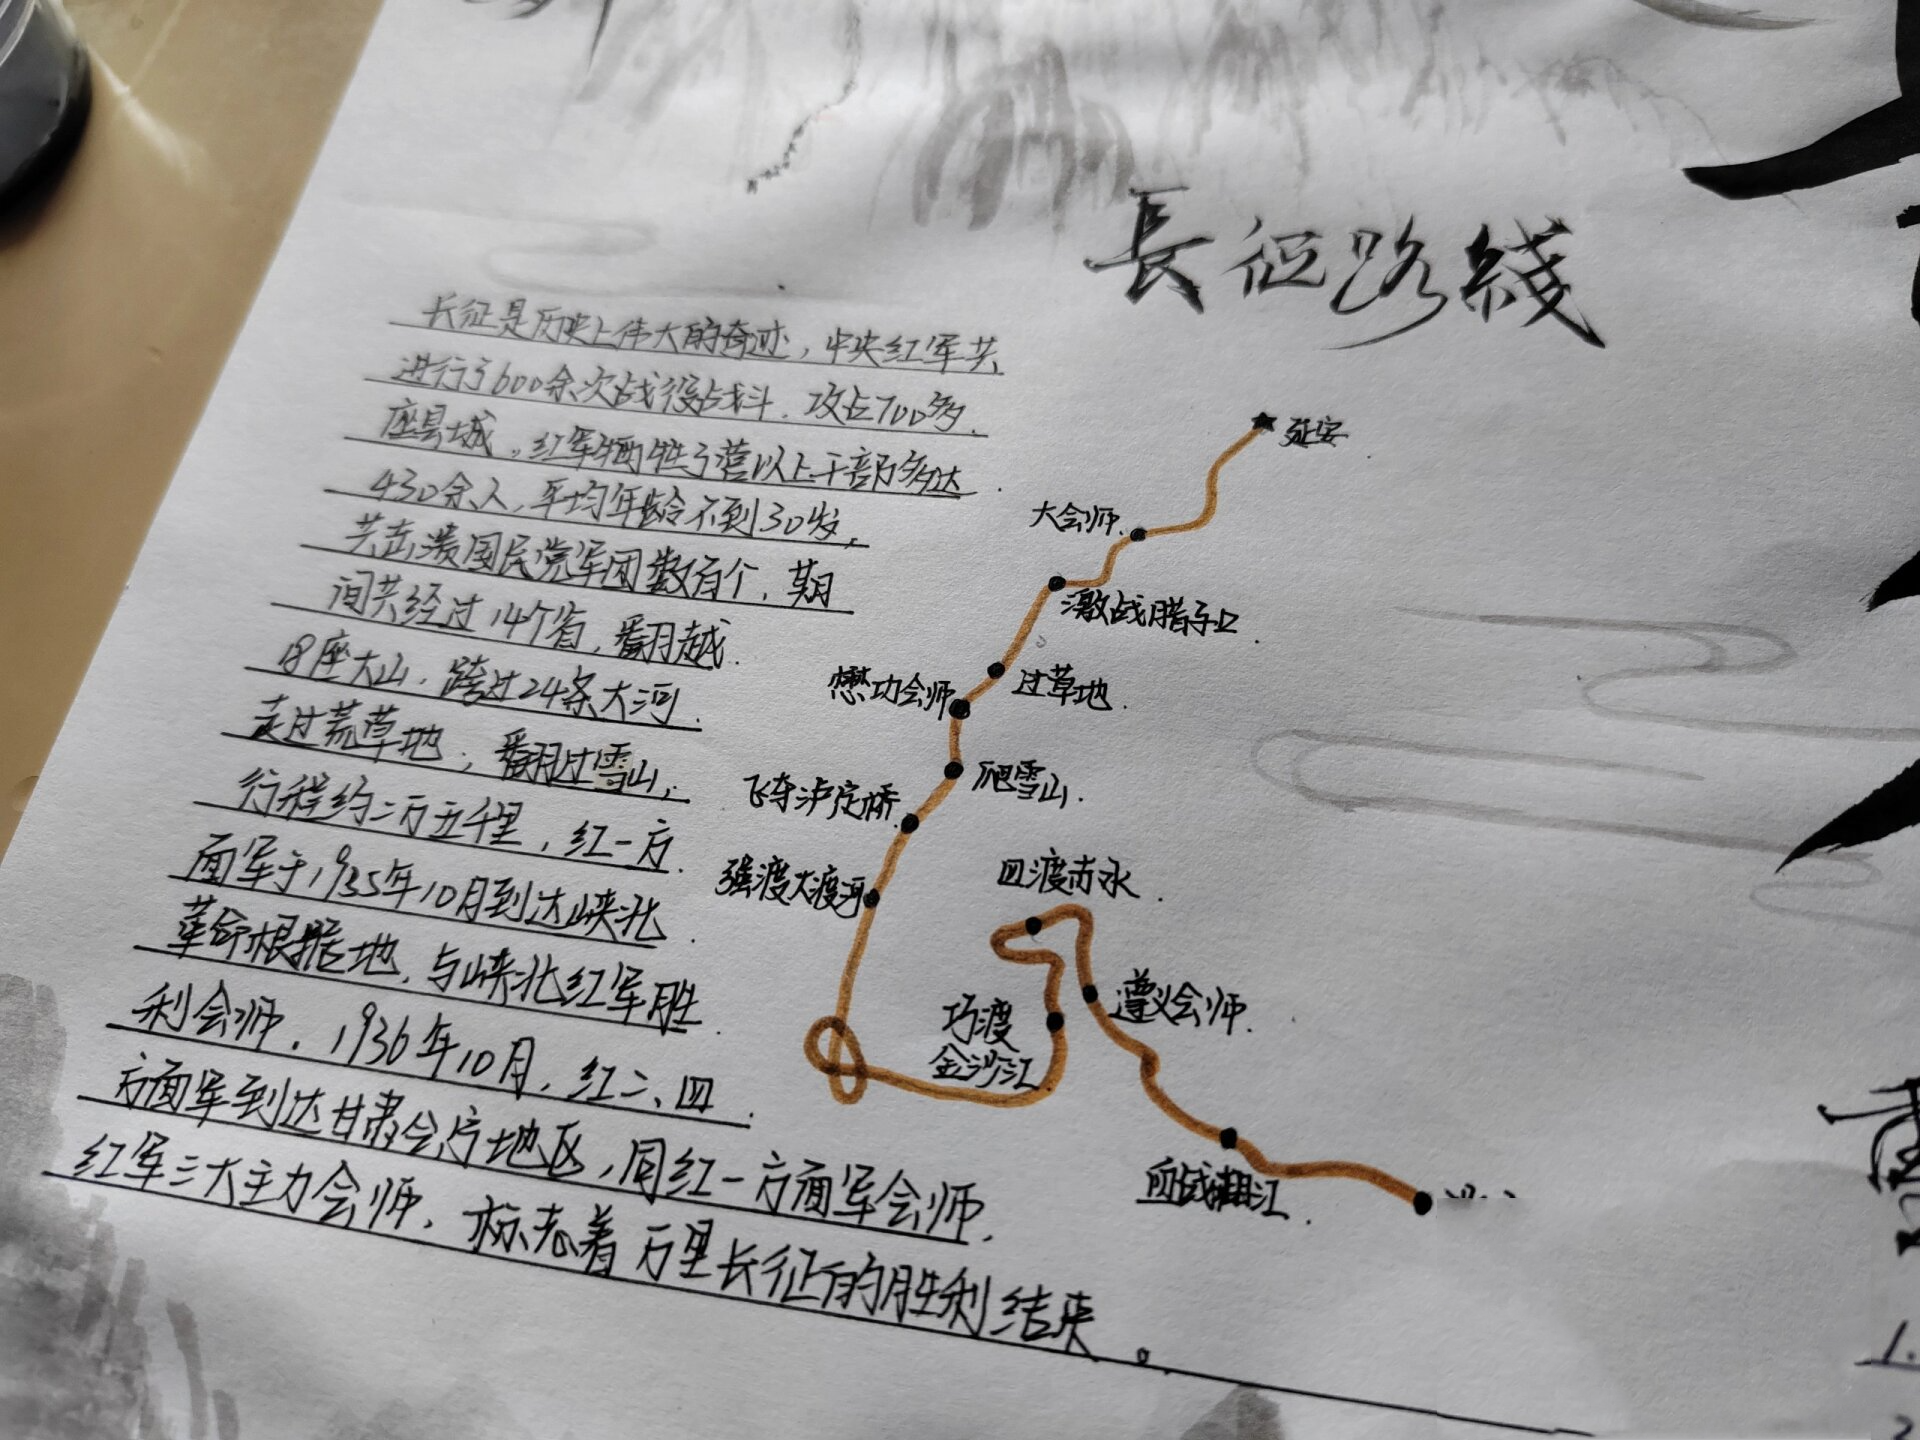 長征路綫
长征是历史上伟大的奇迹，中央红军共
进行了600余次战役战斗，攻占700多
座县城。红军牺牲了营以上干部多达
430余人，平均年龄不到30岁，
共击溃国民党军团数百个，期
间共经过14个省，翻越
18座大山，跨过24条大河
走过荒草地，翻过雪山，
行程约二万五千里，红一方
面军于1935年10月到达峡北
革命根据地，与峡北红军胜
利会师．1936年10月，红二、四
方面军到达甘肃会宁地区，同红一方面军会师．
红军三大主力会师，标志着万里长征的胜利结束。
延安
大会师．
激战腊子口．
过草地．
懋功会师
爬雪山．
飞夺泸定桥
强渡大渡河
四渡赤水．
遵义会师．
巧渡
金沙江
血战湘江．
1.
2